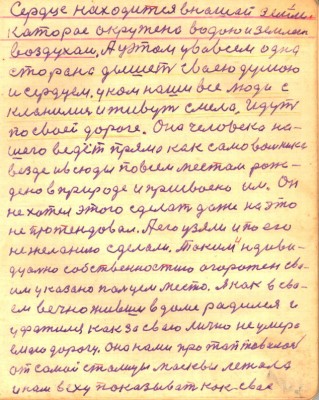 Сердце находится в нашой земли
каторае окружено водою и землею
воздухам. А у этом у во всем одна
старана дышет сваею думаю
и сердуем. у ком наши все люди с
кланилис и живут смела. Идут
по своей дороге. Она человека на-
шего ведёт прямо как само
везде и всюды по всем местам рож-
дено в природе и присвоено им. Он
не хотел этого сделат даже на это
не претендовал. А его узяли и по его
нежеланию сделали. Таким
собственностию огоротен сва-
им указано палучет место. Я как в сва-
ем вечно жившим в доме радился и
у как за сваю лично не умира
емаю дорогу. Она нами про таптоваласа
от самой сталицы масквы лежала
и нам веху показыват как свае